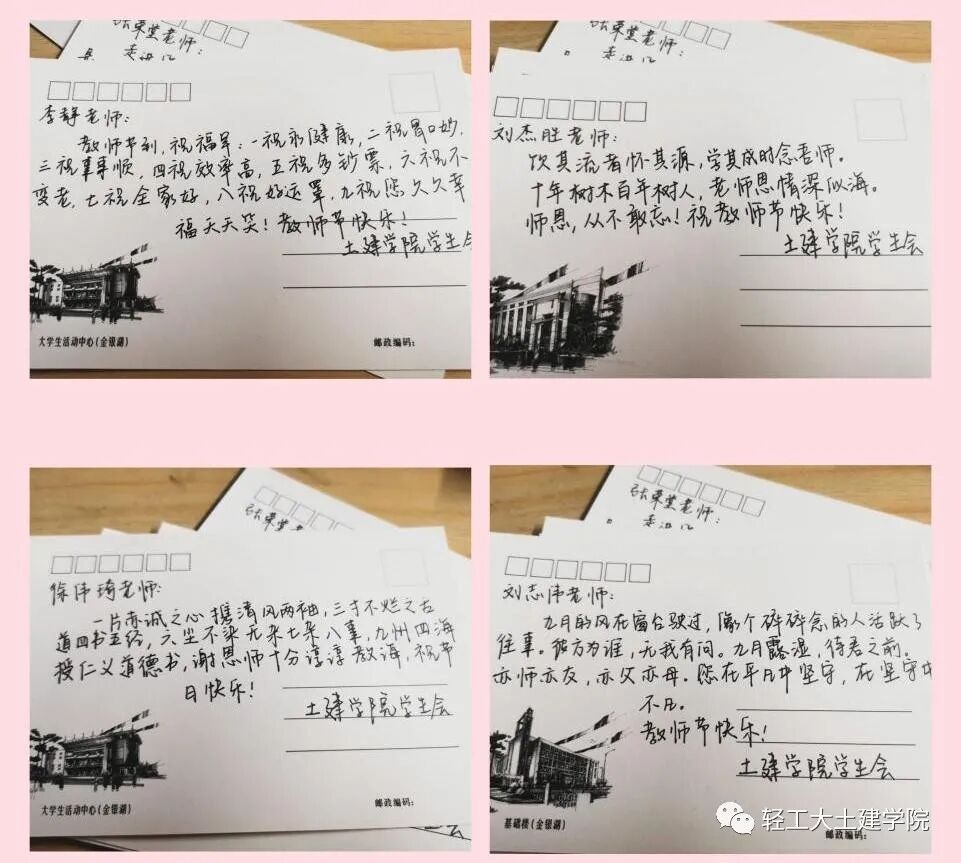 张東堂老师:
走进
李静老师:
教师节到,祝福早:一祝永健康,二祝胃口妙,
三祝事事顺,四祝效率高,五祝多钞票,六祝不
变老,七祝全家好,八祝好运罩,九祝您久久幸
福天天笑!教师节快乐!
土建学院学生会
大学生活动中心(金银湖)
邮政编码:
张東堂老师:
走进
刘杰胜老师:
饮其流者怀其源,学其成时念吾师。
十年树木百年树人,老师恩情深似海。
师恩,从不敢忘!祝教师节快乐!
土建学院学生会
张東堂老师:
徐伟琦老师:
一片赤诚之心携清风两袖,三寸不烂之舌
道四书五经,六尘不染无杂七杂八事,九州四海
授仁义道德书,谢恩师十分谆谆教诲,祝节
日快乐!
土建学院学生会
大学生活动中心(金银湖)
邮政编码:
张東堂老师:
走进
刘志伟老师:
九月的风在窗台驶过,像个碎碎念的人活跃了
往事。彼方为谁,无我有问。九月露湿,待君之前。
亦师亦友,亦父亦母。您在平凡中坚守,在坚守中
不凡。
教师节快乐!
土建学院学生会
基础楼(金银湖)
邮政编码:
轻工大土建学院